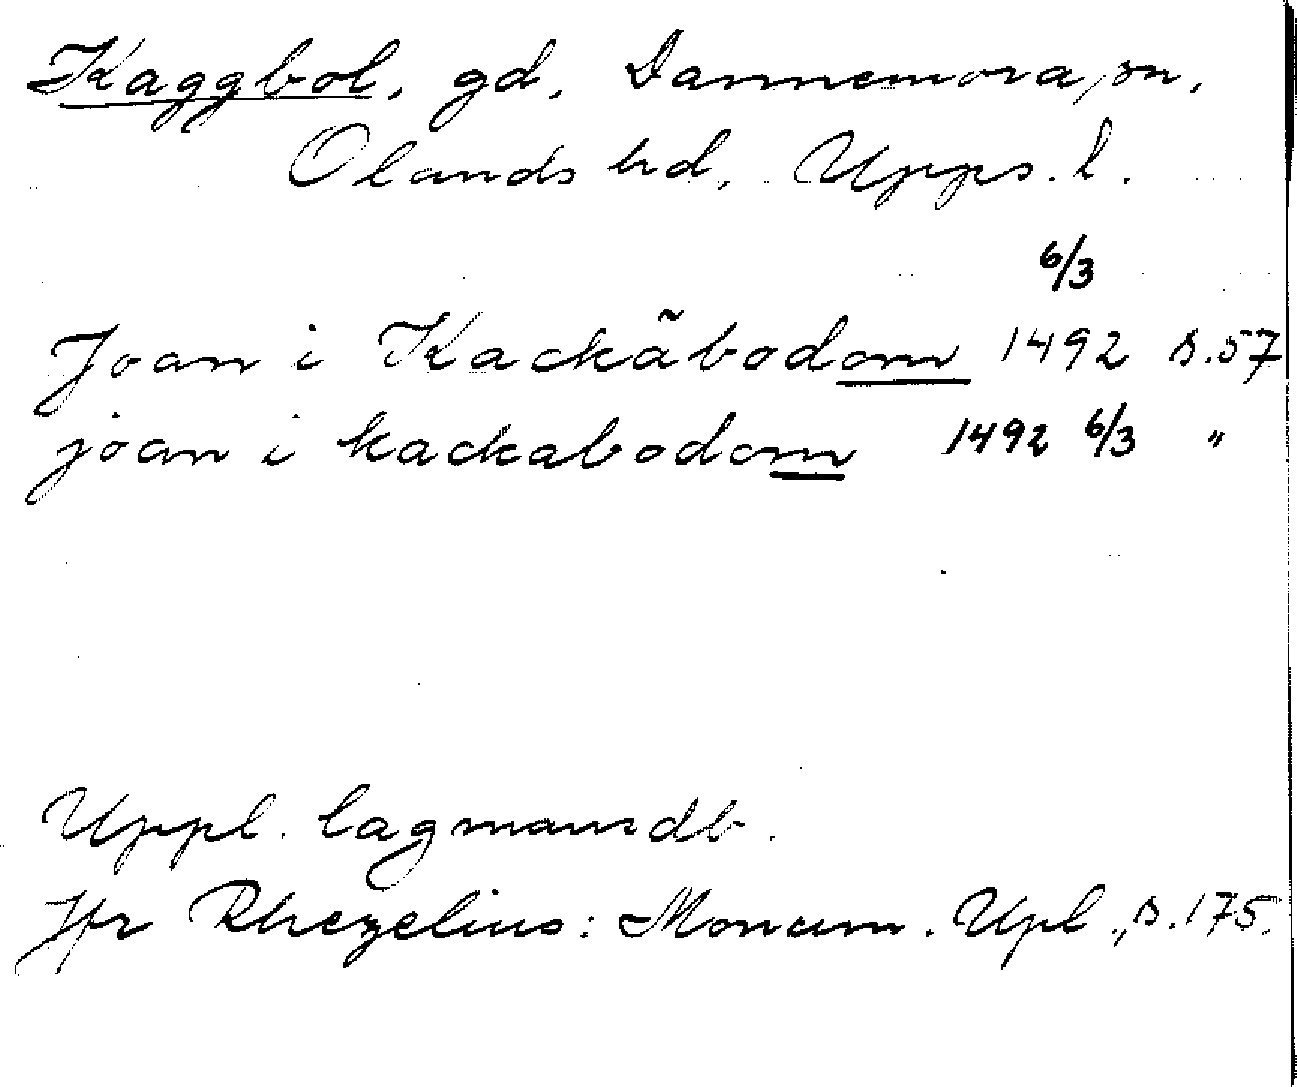 Kaggbol, gd, Dannemora sn,
Olands hd, Upps. l.
6/3
Joan i Kackãbodom 1492 s.57
joan i kackabodom 1492 6/3 "
Uppl. lagmansdb.
Jfr Rhezelius: Monum. Upl., s.175.